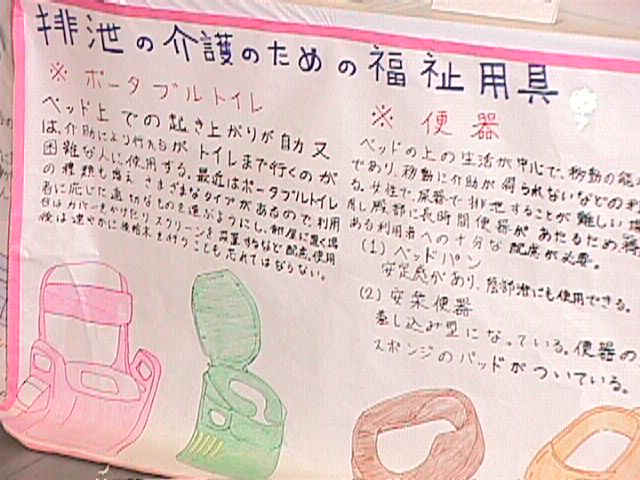 排泄の介護のための福祉用具
※ ポータブルトイレ
ベッド上での起き上がりが自力又
は、介助により行えるが トイレまで行くのが
困難な人に使用する。最近はポータブルトイレ
の種類も増え さまざまなタイプがあるので、利用
者に応じた適切なものを選ぶようにし、部屋に置く場
合はカバーをかけたり スクリーンを設置するなど配慮、使用
後は速やかに後始末を行うことも忘れてはならない。
※ 便器
ベッドの上の生活が中心で、移動の能
であり、移動に介助が得られないなどの利
る。女性で、尿器で排泄することが難しい場
用し 臀部に長時間便器があたるため
ある利用者への十分な配慮が必要。
(1) ベッドパン
安定感があり、陰部洗にも使用できる。
(2) 安楽便器
差し込み型になっている。便器の
スポンジのパッドがついている。